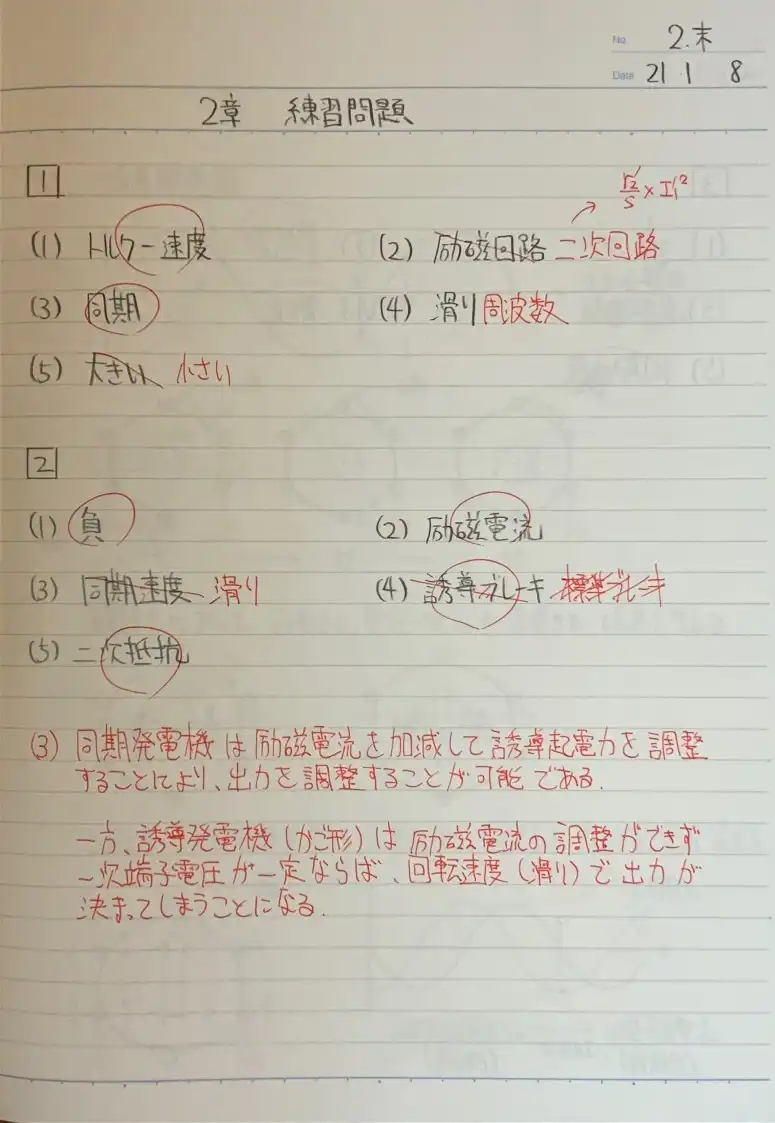 No. 2.末
Date 21 1 8
2章 練習問題
1
r2'/s × I1'²
(1) トルク－速度 (2) 励磁回路 二次回路
(3) 同期 (4) 滑り周波数
(5) 大きい 小さい
2
(1) 負 (2) 励磁電流
(3) 同期速度 滑り (4) 誘導ブレーキ 標準ブレーキ
(5) 二次抵抗
(3) 同期発電機は励磁電流を加減して誘導起電力を調整
することにより、出力を調整することが可能である.
一方、誘導発電機(かご形)は励磁電流の調整ができず
一次端子電圧が一定ならば、回転速度(滑り)で出力が
決まってしまうことになる.